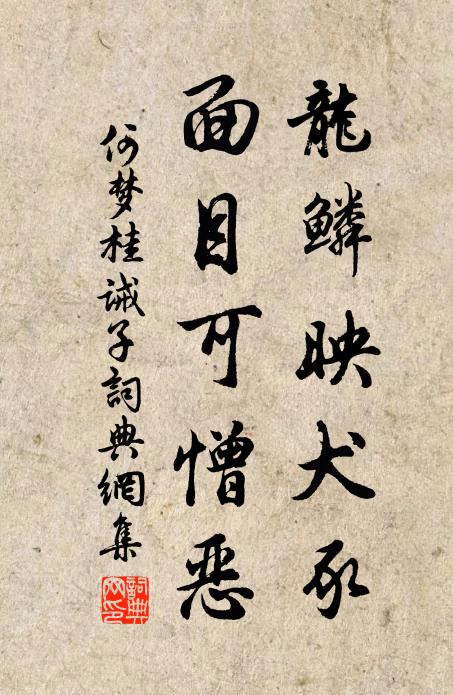 龍鱗映犬豕
面目可憎惡
何梦桂誡子詞典網集
詞典
网印